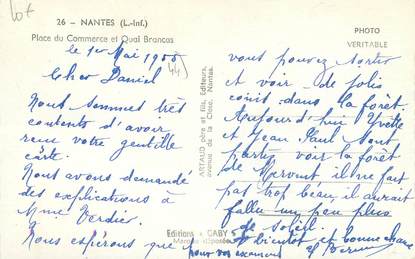 26 - NANTES (L.-Inf.)
Place du Commerce et Quai Brancas
PHOTO
VERITABLE
44
le 1er Mai 1955
Cher Daniel
Nous sommes très
contents d'avoir
reçu votre gentille
carte.
Nous avons demandé
des explications à
Mme Verdier.
Nous espérons que
pour vos examens
ARTAUD père et fils, Editeurs,
avenue de la Close, Nantes.
Editions "GABY"
Marque déposée
vous pouvez sortir
et voir de jolis
coins dans la forêt.
Aujourd'hui Yvette
et Jean Paul sont
partis voir la forêt
de Mervent il ne fait
pas trop beau, il aurait
fallu un peu plus
de soleil.
A bientôt et bonne chance